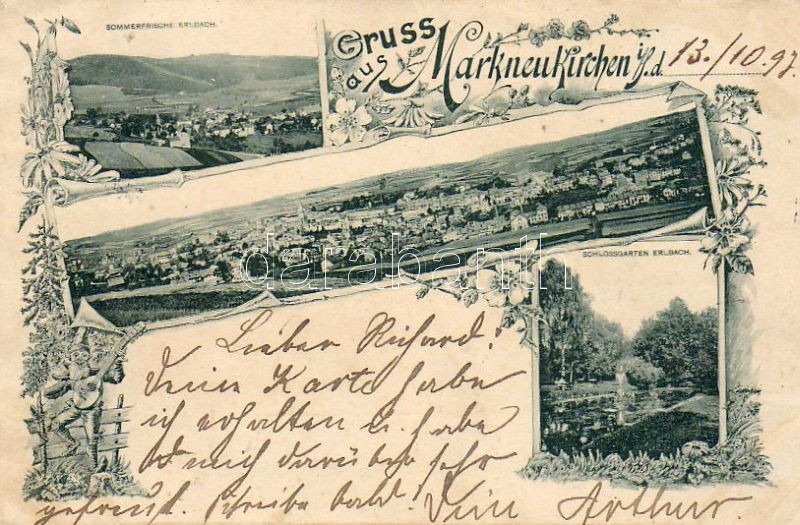 SOMMERFRISCHE ERLBACH.
Gruss aus Markneukirchen i/S. d. 13./10.97.
SCHLOSSGARTEN ERLBACH.
darabanth
Lieber Richard!
Deine Karte habe
ich erhalten u. habe
mich darüber sehr
gefreut. Schreibe bald! Dein Arthur.